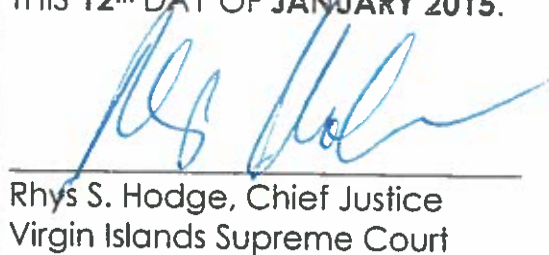 THIS 12th DAY OF JANUARY 2015.
Rhys S. Hodge, Chief Justice
Virgin Islands Supreme Court